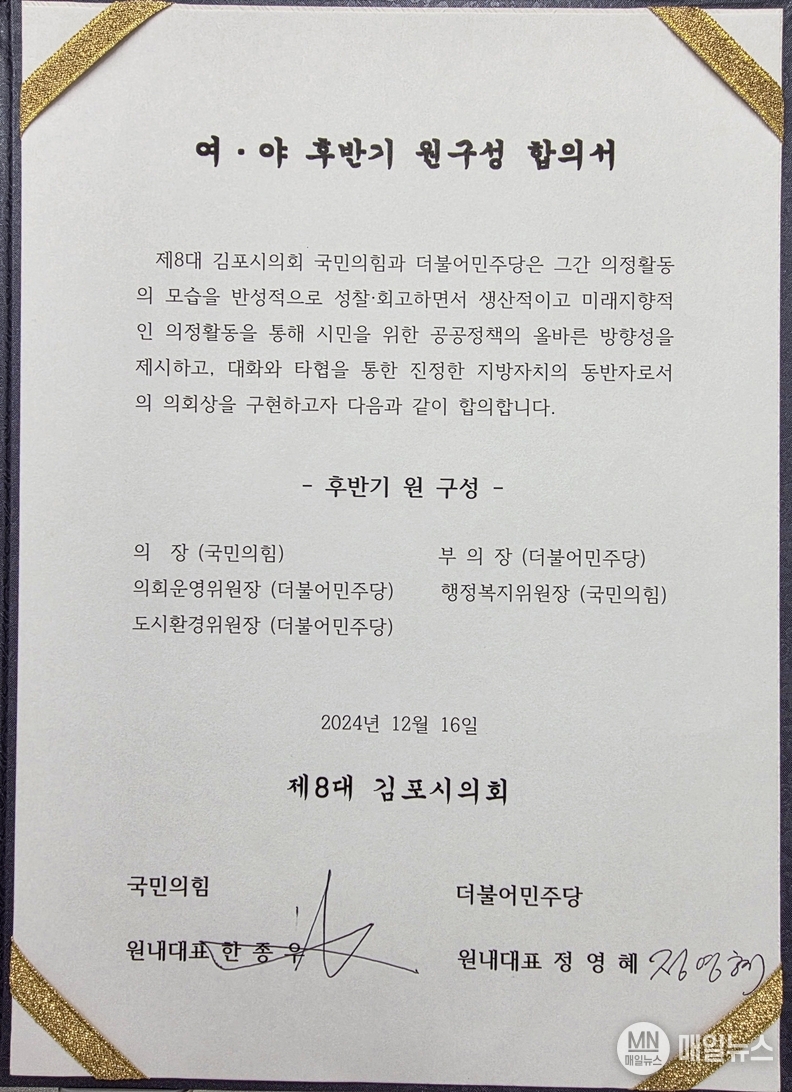 여·야 후반기 원구성 합의서
제8대 김포시의회 국민의힘과 더불어민주당은 그간 의정활동
의 모습을 반성적으로 성찰·회고하면서 생산적이고 미래지향적
인 의정활동을 통해 시민을 위한 공공정책의 올바른 방향성을
제시하고, 대화와 타협을 통한 진정한 지방자치의 동반자로서
의 의회상을 구현하고자 다음과 같이 합의합니다.
- 후반기 원 구성 -
의 장 (국민의힘) 부 의 장 (더불어민주당)
의회운영위원장 (더불어민주당) 행정복지위원장 (국민의힘)
도시환경위원장 (더불어민주당)
2024년 12월 16일
제8대 김포시의회
국민의힘 더불어민주당
원내대표 한 종 우 원내대표 정 영 혜 정영혜
MN 매일뉴스 매일뉴스